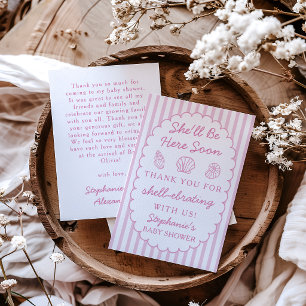 Thank you so much for
coming to my baby shower.
It was great to see all
friends and family and
celebrate our growing family
with you all. Thank you
your generous gift, we a
looking forward to using
We feel so very blessed
have each love and sup
at the arrival of Ba
Olivia!
with love,
Stephanie
Alexan
She'll Be
Here Soon
THANK YOU FOR
shell-ebrating
WITH US!
Stephanie's
BABY SHOWER